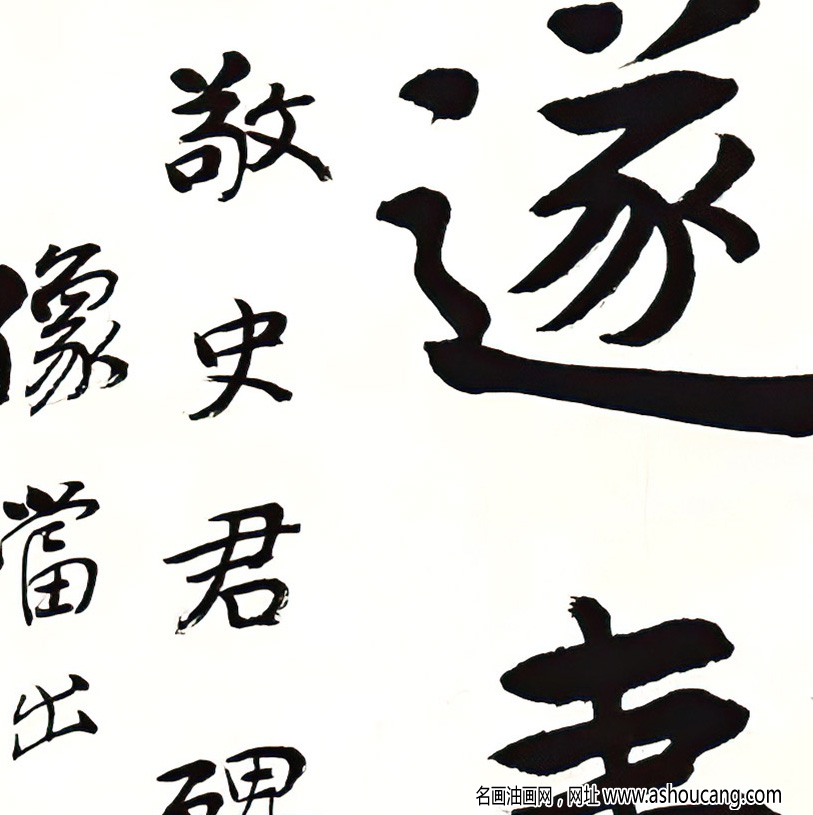 遂
敬史君碑
像當出
名画油画网，网址 www.ashoucang.com